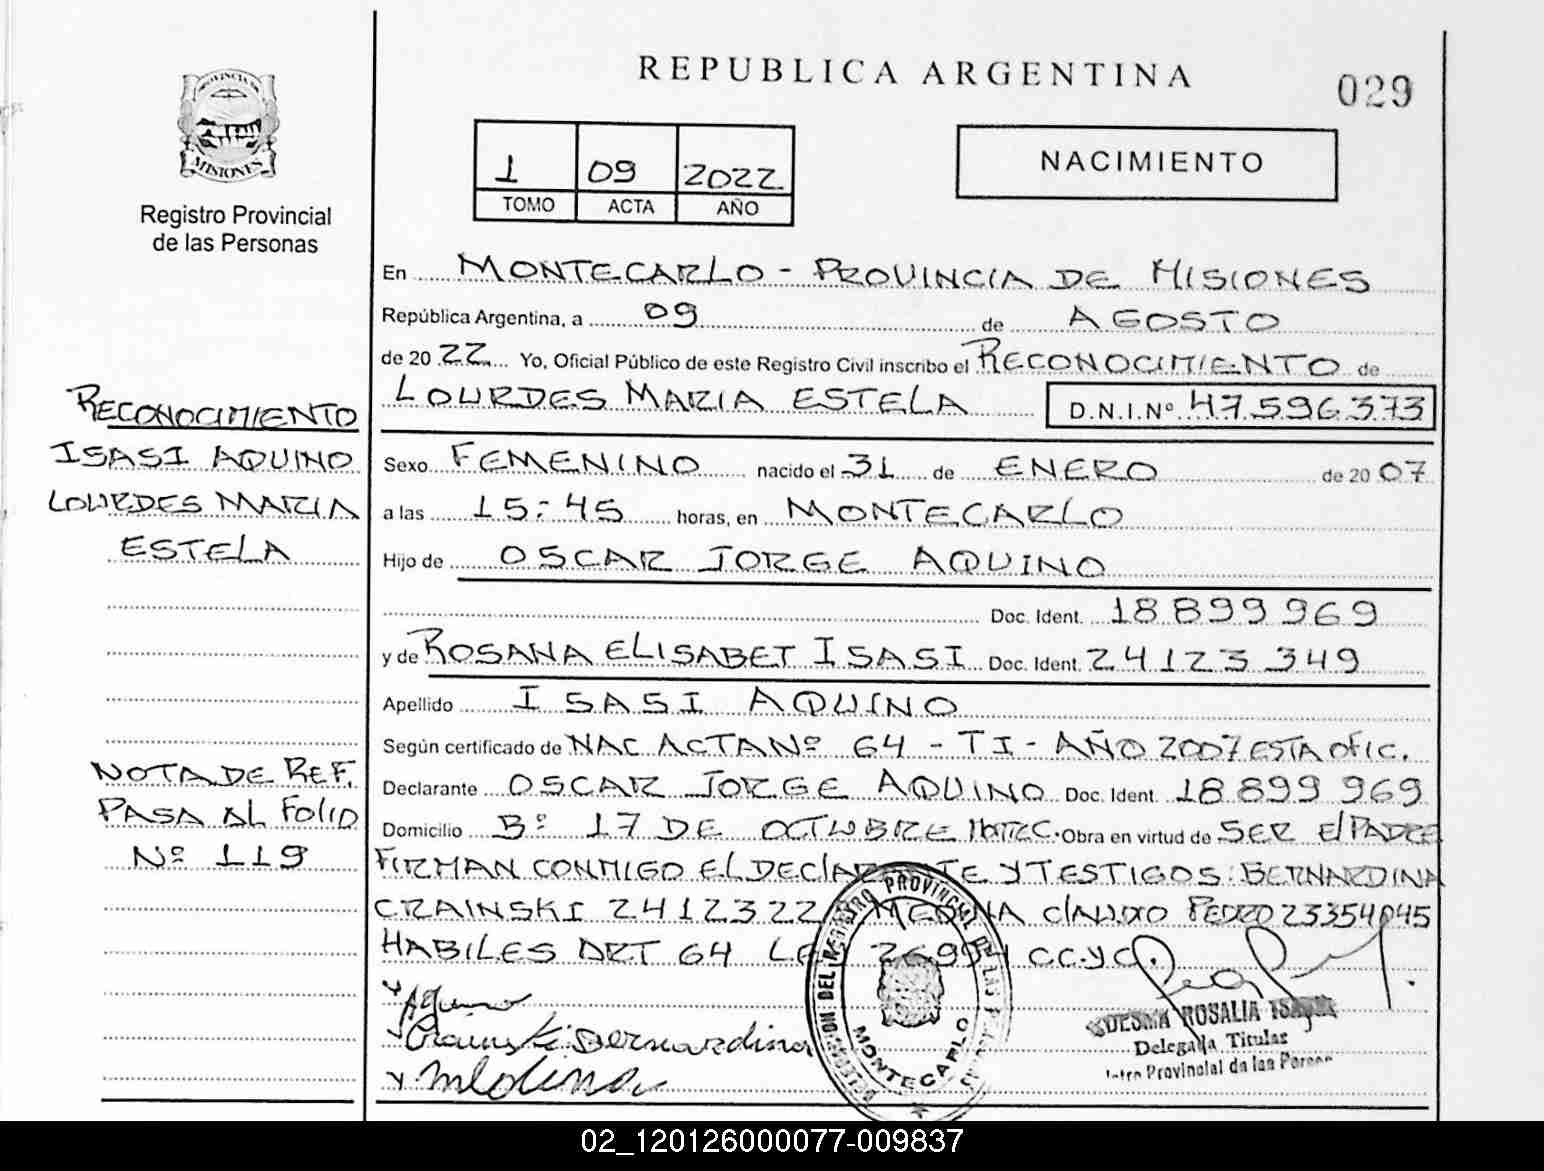 REPUBLICA ARGENTINA
029
PROVINCIA DE
MISIONES
Registro Provincial
de las Personas
1 09 2022
TOMO ACTA AÑO
NACIMIENTO
En MONTECARLO - PROVINCIA DE MISIONES
República Argentina, a 09 de AGOSTO
de 20 22 Yo, Oficial Público de este Registro Civil inscribo el RECONOCIMIENTO de
LOURDES MARIA ESTELA D.N.I.Nº 47.596.373
Sexo FEMENINO nacido el 31 de ENERO de 20 07
a las 15:45 horas, en MONTECARLO
Hijo de OSCAR JORGE AQUINO
Doc. Ident. 18 899 969
y de ROSANA ELISABET ISASI Doc. Ident. 24 123 349
Apellido ISASI AQUINO
Según certificado de NAC ACTA Nº 64 - TI - AÑO 2007 ESTA OFIC.
Declarante OSCAR JORGE AQUINO Doc. Ident. 18 899 969
Domicilio Bº 17 DE OCTUBRE Obra en virtud de SER El PADRE
FIRMAN CONMIGO EL DEClARANTE Y TESTIGOS: BERNARDINA
CRAINSKI MEDINA ClAUDIO PEDRO 23354045
HABILES ART 64 LEY 26994 C.C.Y C.
RECONOCIMIENTO
ISASI AQUINO
LOURDES MARIA
ESTELA
NOTA DE REF.
PASA AL FOlIO
Nº 119
Aquino
Crainski Bernardina
Medina
DELEGACION DEL REGISTRO PROVINCIAL DE LAS
MONTECARLO
ROSALIA
Delegada Titular
Provincial de las Person
02_120126000077-009837